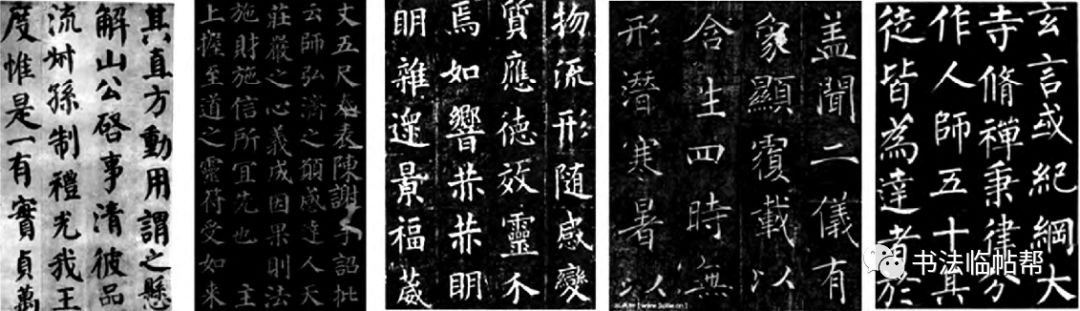 其直方動用謂之懸
解山公啓事清彼品
流叔孫制禮光我王
度惟是一有實貞萬
丈五尺奉表陳謝手詔批
云師弘濟之願感達人天
莊嚴之心義成因果則法
施財施信所宜先也 主
上握至道之靈符受如来
物流形随感變
質應德效靈不
焉如響赫赫明
明雜遝景福葳
盖聞二儀有
象顯覆載以
含生四時無
形潛寒暑以
玄言或紀綱大
寺脩禪秉律分
作人師五十其
徒皆為達者於
书法临帖帮